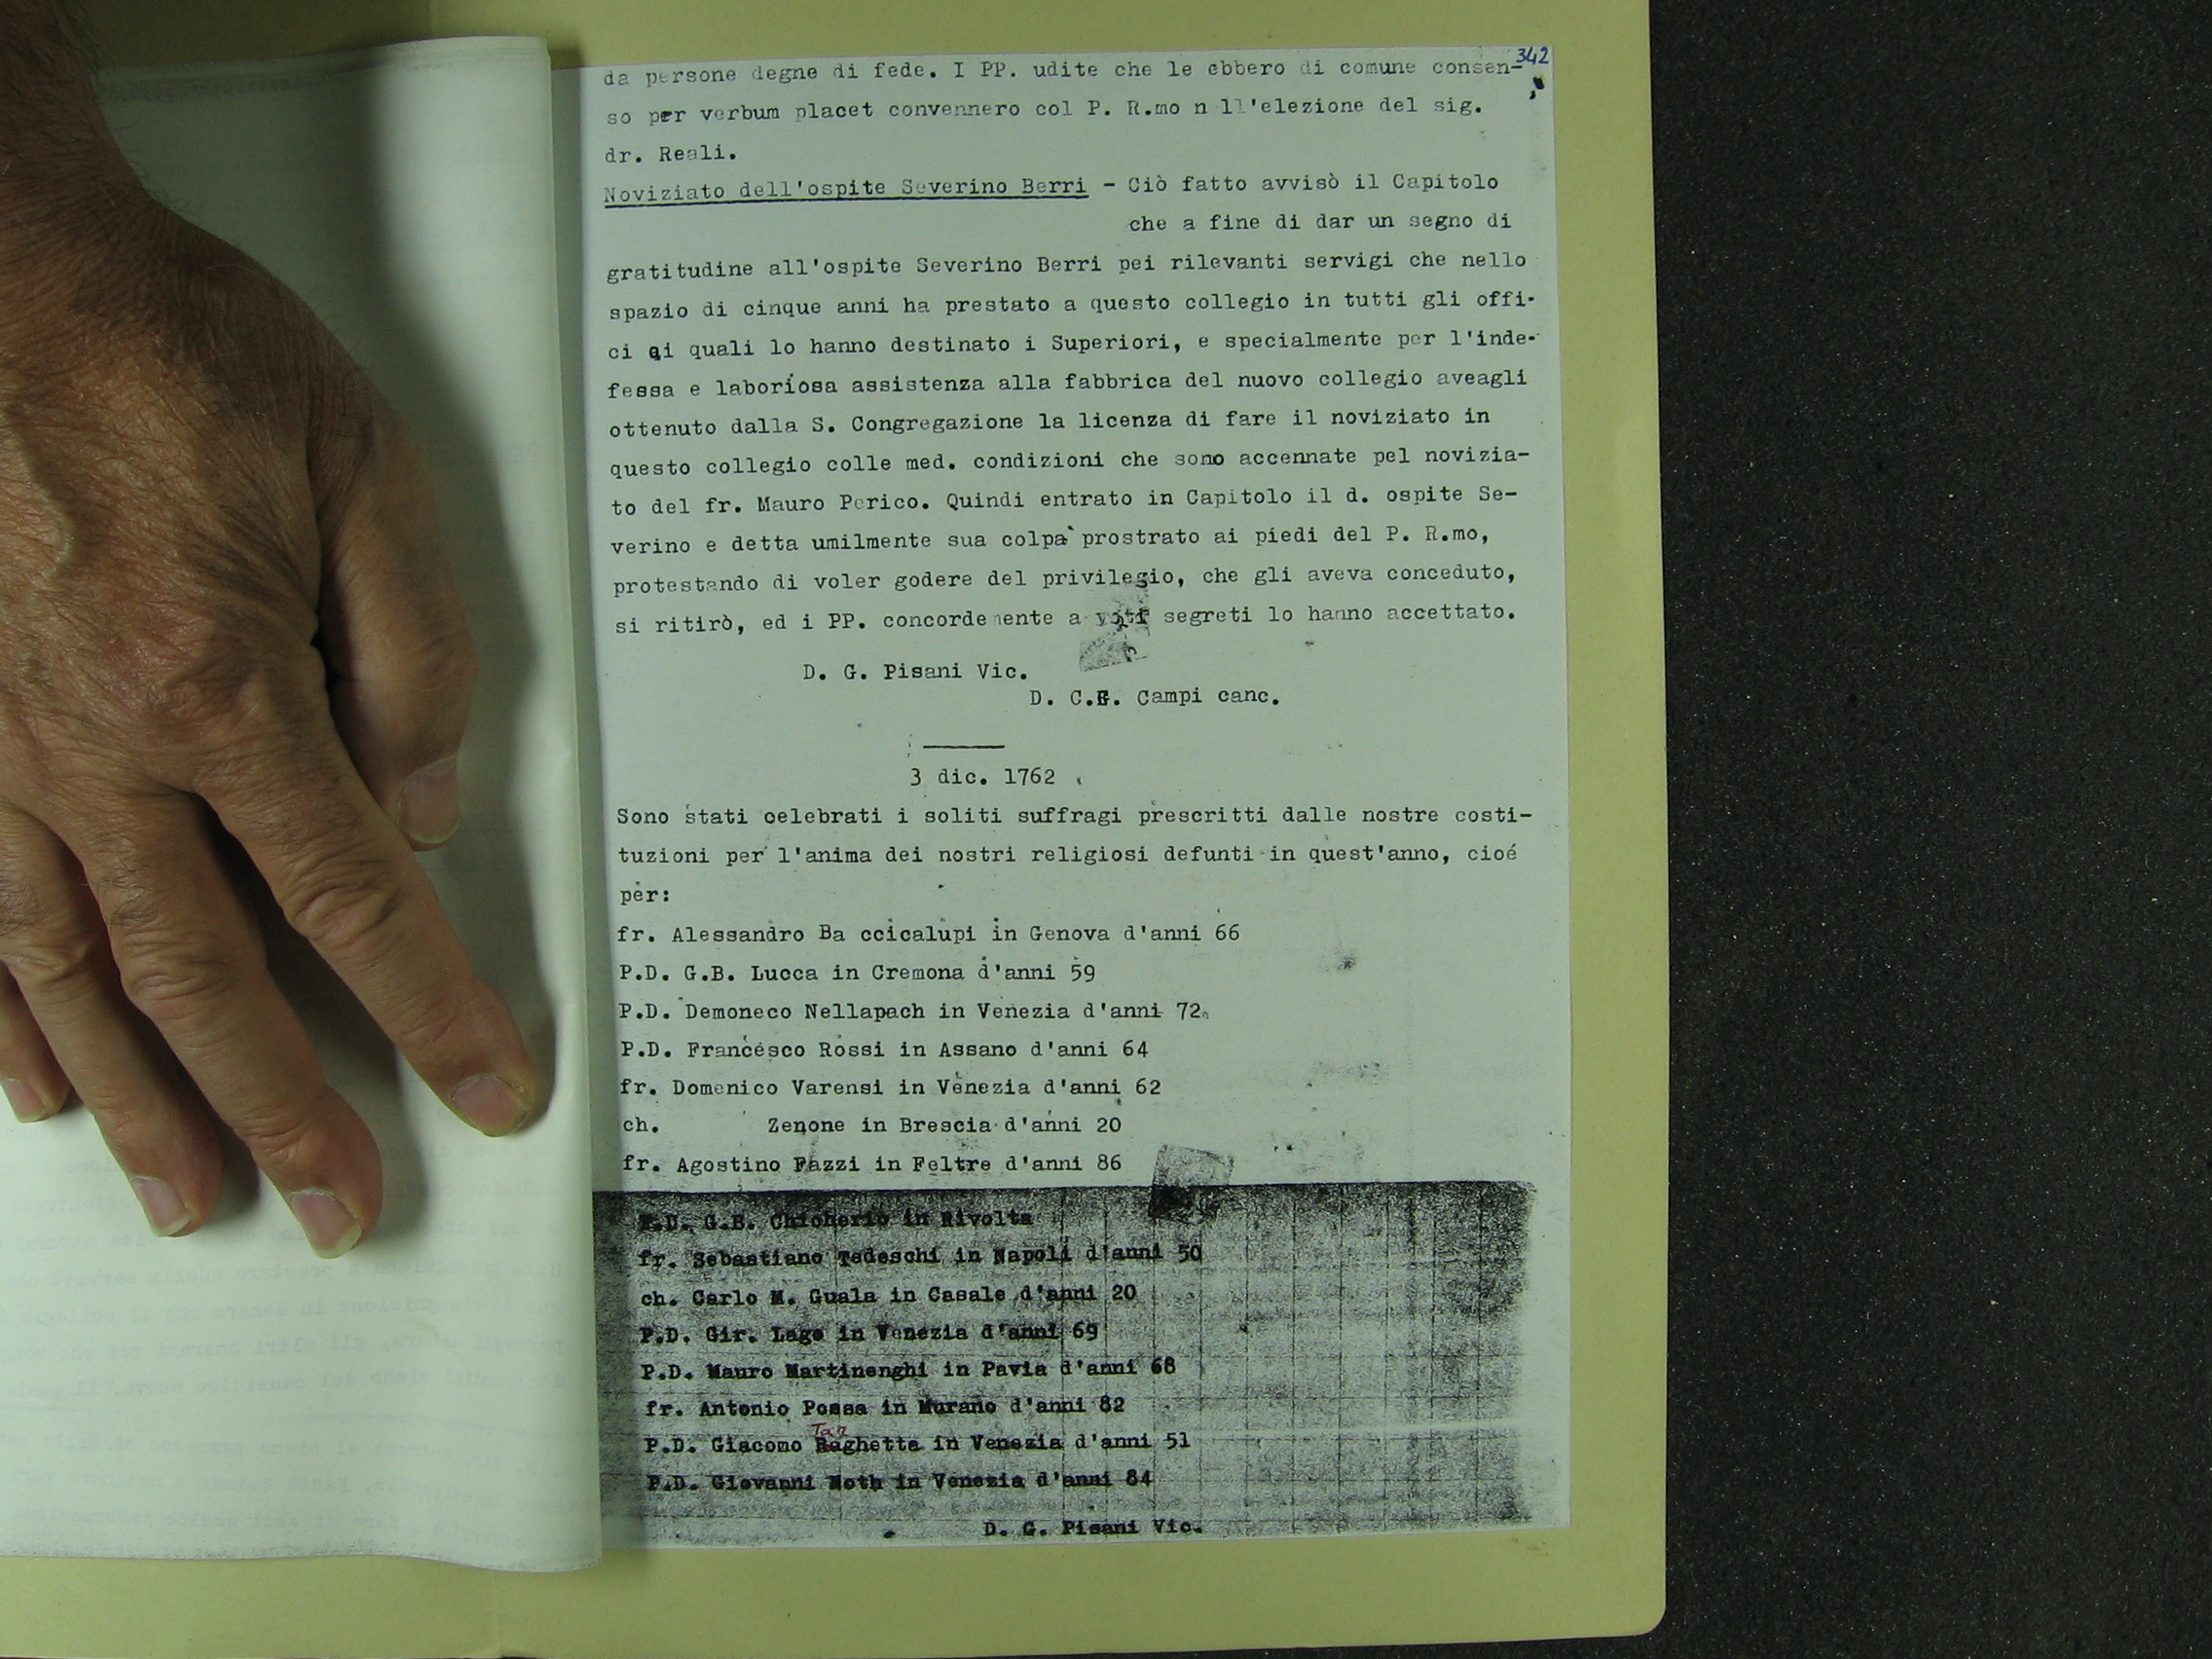 342
da persone degne di fede. I PP. udite che le ebbero di comune consen-
so per verbum placet convennero col P. R.mo n ll'elezione del sig.
dr. Reali.
Noviziato dell'ospite Severino Berri - Ciò fatto avvisò il Capitolo
che a fine di dar un segno di
gratitudine all'ospite Severino Berri pei rilevanti servigi che nello
spazio di cinque anni ha prestato a questo collegio in tutti gli offi-
ci ai quali lo hanno destinato i Superiori, e specialmente per l'inde-
fessa e laboriosa assistenza alla fabbrica del nuovo collegio aveagli
ottenuto dalla S. Congregazione la licenza di fare il noviziato in
questo collegio colle med. condizioni che sono accennate pel novizia-
to del fr. Mauro Perico. Quindi entrato in Capitolo il d. ospite Se-
verino e detta umilmente sua colpa prostrato ai piedi del P. R.mo,
protestando di voler godere del privilegio, che gli aveva conceduto,
si ritirò, ed i PP. concordemente a voti segreti lo hanno accettato.
D. G. Pisani Vic.
D. C. Campi canc.
3 dic. 1762
Sono stati celebrati i soliti suffragi prescritti dalle nostre costi-
tuzioni per l'anima dei nostri religiosi defunti in quest'anno, cioé
per:
fr. Alessandro Ba ccicalupi in Genova d'anni 66
P.D. G.B. Lucca in Cremona d'anni 59
P.D. Demoneco Nellapach in Venezia d'anni 72.
P.D. Francesco Rossi in Assano d'anni 64
fr. Domenico Varensi in Venezia d'anni 62
ch. Zenone in Brescia d'anni 20
fr. Agostino Fazzi in Feltre d'anni 86
P.D. G.B. Chicherio in Rivolta
fr. Sebastiano Tedeschi in Napoli d'anni 50
ch. Carlo M. Guala in Casale d'anni 20
P.D. Gir. Lago in Venezia d'anni 69
P.D. Mauro Martinenghi in Pavia d'anni 68
fr. Antonio Possa in Murano d'anni 82
Tar
P.D. Giacomo Raghetta in Venezia d'anni 51
P.D. Giovanni Noth in Venezia d'anni 84
D. G. Pisani Vic.